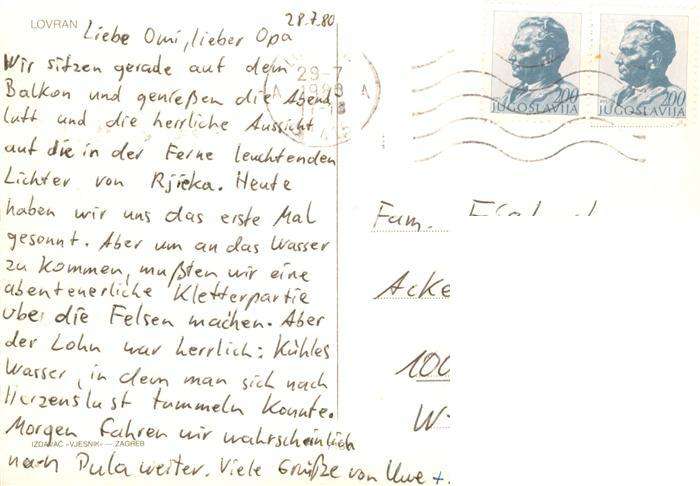 LOVRAN
28.7.80
Liebe Omi, lieber Opa
Wir sitzen gerade auf dem
Balkon und genießen die Abend
luft und die herrliche Aussicht
auf die in der Ferne leuchtenden
Lichter von Rjieka. Heute
haben wir uns das erste Mal
gesonnt. Aber um an das Wasser
zu kommen, mußten wir eine
abenteuerliche Kletterpartie
über die Felsen machen. Aber
der Lohn war herrlich: Kühles
Wasser, in dem man sich nach
Herzenslust tummeln konnte.
Morgen fahren wir wahrscheinlich
IZDAVAČ »VJESNIK« — ZAGREB
nach Pula weiter. Viele Grüße von Uwe +.
29-7
200
JUGOSLAVIJA
200
JUGOSLAVIJA
Fam.
Acke
100
W-